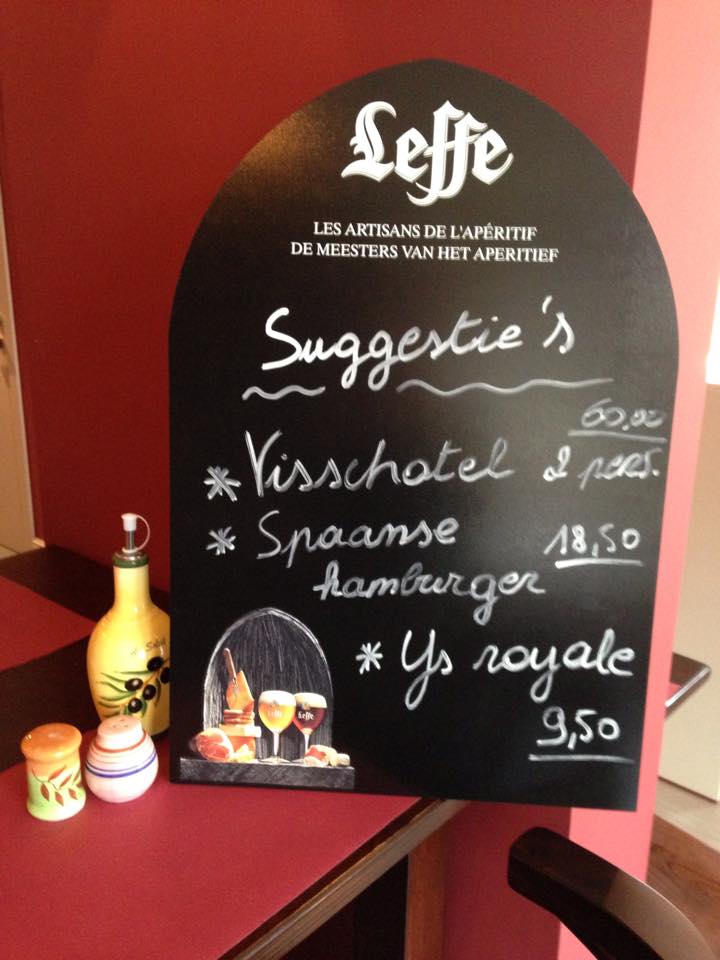 Leffe
LES ARTISANS DE L'APÉRITIF
DE MEESTERS VAN HET APERITIEF
Suggestie's
60,00
* Visschotel 2 pers.
* Spaanse 18,50
hamburger
* Ys royale
9,50
Leffe Leffe